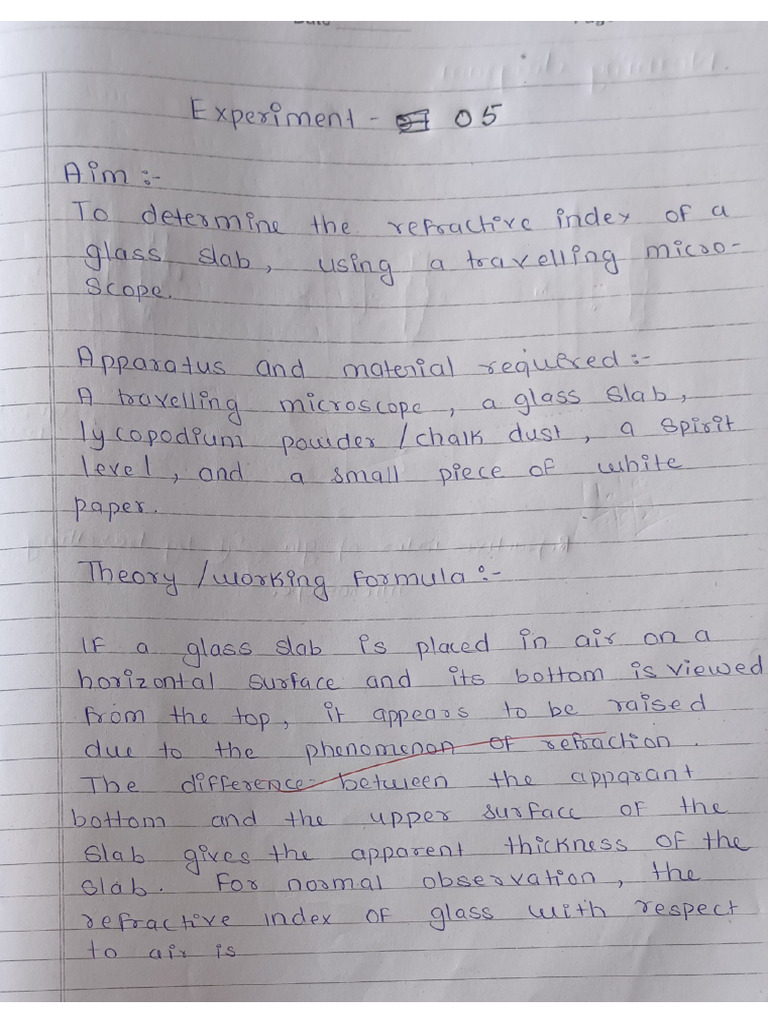 Experiment - 05
Aim :-
To determine the refractive index of a
glass slab, using a travelling micro-
scope.
Apparatus and material required :-
A travelling microscope, a glass slab,
lycopodium powder/chalk dust, a spirit
level, and a small piece of white
paper.
Theory/working formula :-
If a glass slab is placed in air on a
horizontal surface and its bottom is viewed
from the top, it appears to be raised
due to the phenomenon of refraction.
The difference between the apparant
bottom and the upper surface of the
slab gives the apparent thickness of the
slab. For normal observation, the
refractive index of glass with respect
to air is